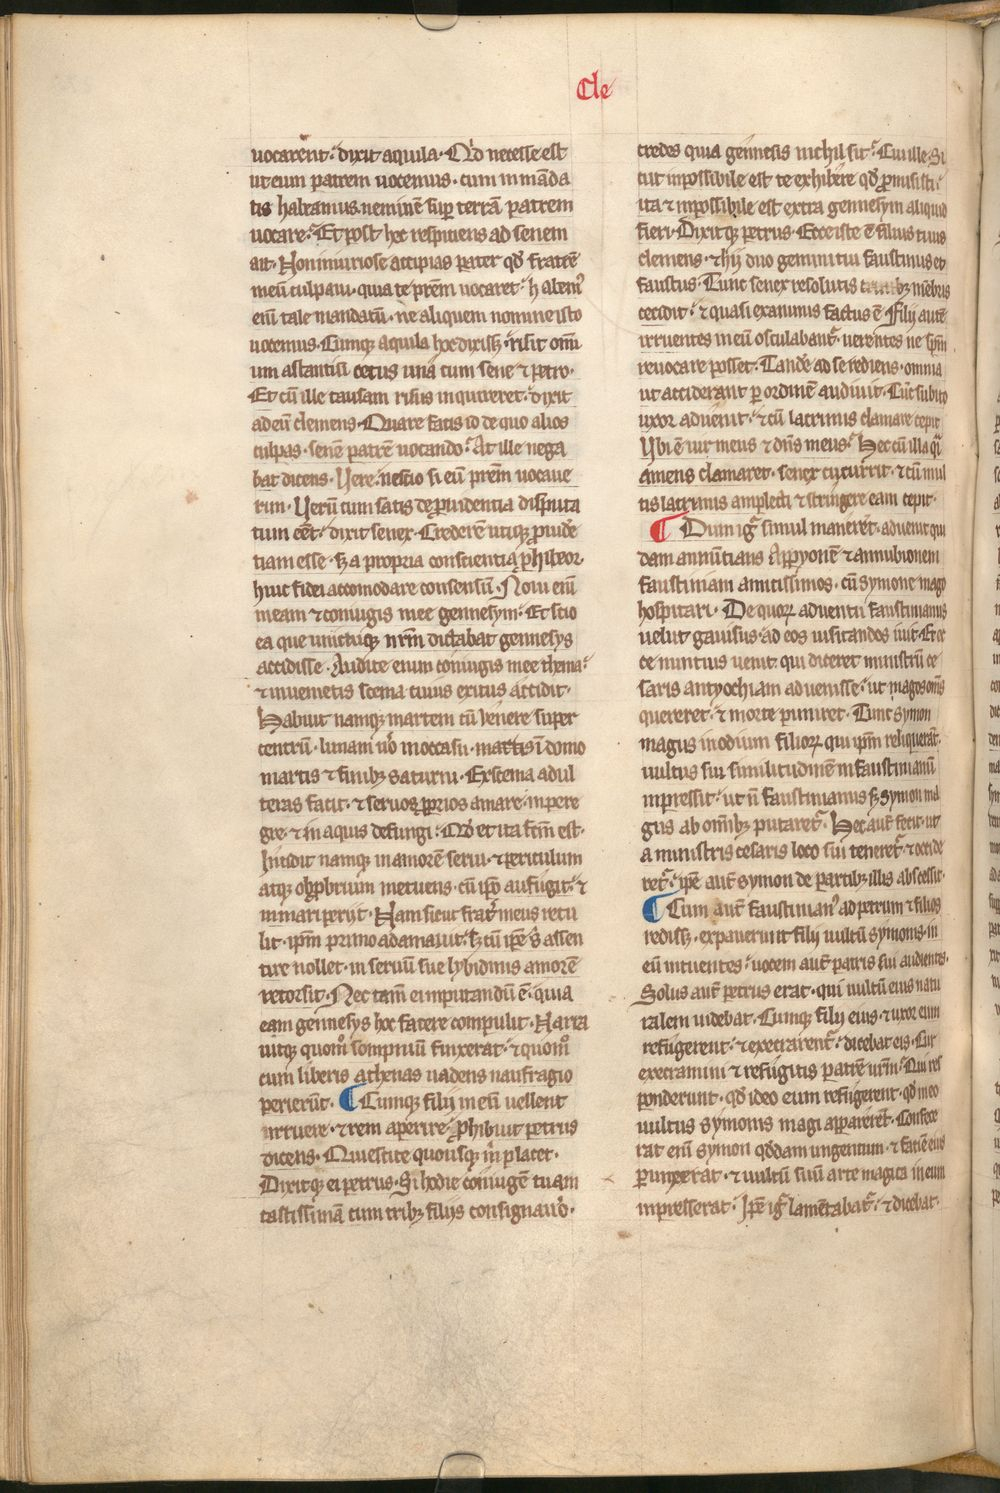 Cle
uocarent? dixit aquila. Qđ necesse est
ut eum patrem uocemus. cum in mãda
tis habeamus neminẽ sup terrã patrem
uocare? Et post hec respiciens ad senem
ait. Non iniuriose accipias pater qđ fratrẽ
meũ culpaui. quia te pr̃em uocaret? habem᷒
eni tale mandatũ. ne aliquem nomine isto
uocemus. Cumqꝫ aquila hoc dixissꝫ. risit om̃i
um astantiũ cetus una cum sene ⁊ petro.
Et cũ ille causam risus inquireret? dixit
ad eũ clemens. Quare facis id de quo alios
culpas. senẽ patrẽ uocando? At ille nega
bat dicens. Vere. nescio si eũ pr̃em uocaue
rim. Verũ cum satis de ꝓuidentia disputa
tum eẽt. dixit senex. Crederẽ utiqꝫ ꝓuidẽ
tiam esse. sꝫ a propria conscientia ꝓhibeor
huic fidei accomodare consensũ. Noui eni
meam ⁊ coniugis mee gennesym. Et scio
ea que unicuiqꝫ nr̃m dictabat gennesys
accidisse. Audite enim coniugis mee thema?
⁊ inuenietis scema cuius exitus accidit.
Habuit namqꝫ martem cũ uenere super
centrũ. lunam u̾o in occasu. martis ĩ domo
martis ⁊ finibꝫ saturni. Exscema adul
teras facit. ⁊ seruos ꝓprios amare. in pere
gre. ⁊ in aquis defungi. Qđ et ita fc̃m est.
Incidit namqꝫ in amorẽ serui. ⁊ periculum
atqꝫ obꝓbrium metuens. cũ ip̃o aufugit? ⁊
in mari perijt. Nam sicut frater meus retu
lit. ip̃m primo adamauit? sꝫ cũ ip̃e ei assen
tire nollet. in seruũ sue lybidinis amorẽ
retorsit. Nec tam̃ ei imputandũ ẽ. quia
eam gennesys hoc facere compulit. Narra
uitqꝫ quom̃o sompniũ finxerat. ⁊ quom̃o
cum liberis athenas uadens naufragio
perierũt. ¶ Cumqꝫ filij in eũ uellent
irruere. ⁊ rem aperire ꝓhibuit petrus
dicens. Quiescite quousqꝫ m̃ placet.
Dixitqꝫ ei petrus. Si hodie coniugẽ tuam
castissimã cum tribꝫ filijs consignau̾o.
credes quia gennesis nichil sit? Cui ille. Si
cut impossibile est te exhibere qđ ꝓmisisti?
ita ⁊ impossibile est extra gennesym aliquid
fieri. Dixitqꝫ petrus. Ecce iste ẽ filius tuus
clemens. ⁊ hij duo gemini tui faustinus et
faustus. Tunc senex resolutis mẽbris
cecidit. ⁊ quasi exanimis factus ẽ. Filij autẽ
irruentes in eũ osculabant̃. uerentes ne sp̃m
reuocare posset. Tandẽ ad se rediens. omnia
ut acciderant ꝑ ordinẽ audiuit. Tũc subito
uxor aduenit. ⁊ cũ lacrimis clamare cepit
Vbi ẽ uir meus ⁊ dn̄s meus? Hec cũ illa q̃i
amens clamaret. senex cucurrit. ⁊ cũ mul
tis lacrimis amplecti ⁊ stringere eam cepit.
¶ Dum ig̃ simul manerẽt. aduenit qui
dam annũtians Appyonẽ ⁊ annubionem
faustiniani amicissimos. cũ symone mago
hospitari. De quoꝝ aduentu faustinianus
uelut gauisus ad eos uisitandos iuit. Et ec
ce nuntius uenit. qui diceret ministrũ ce
saris antyochiam aduenisse? ut magos om̃s
quereret. ⁊ morte puniret. Tunc symon
magus in odium filioꝝ qui ip̃m reliquerãt.
uultus sui similitudinẽ in faustinianũ
inpressit? ut ñ faustinianus sꝫ symon ma
gus ab om̃ibꝫ putaret̃. Hec aut̃ fecit. ut
a ministris cesaris loco sui teneret̃. ⁊ occide
ret̃. ip̃e aut̃ symon de partibꝫ illis abscessit.
¶ Cum aut̃ faustinian᷒ ad petrum ⁊ filios
redissꝫ. expauerunt filij uultũ symonis in
eũ intuentes? uocem aut̃ patris sui audientes.
Solus aut̃ petrus erat. qui uultũ eius natu
ralem uidebat. Cumqꝫ filij eius. ⁊ uxor eum
refugerent? ⁊ execrarent̃? dicebat eis. Cur
execramini ⁊ refugitis patrẽ ur̃m? Qui res
ponderunt. qđ ideo eum refugerent. qđ in eo
uultus symonis magi appareret. Confece
rat eni symon qđdam ungentum. ⁊ faciẽ eius
ꝑunxerat. ⁊ uultũ suũ arte magica in eum
inpresserat. Ip̃e ig̃ lamẽtabat̃? ⁊ dicebat.